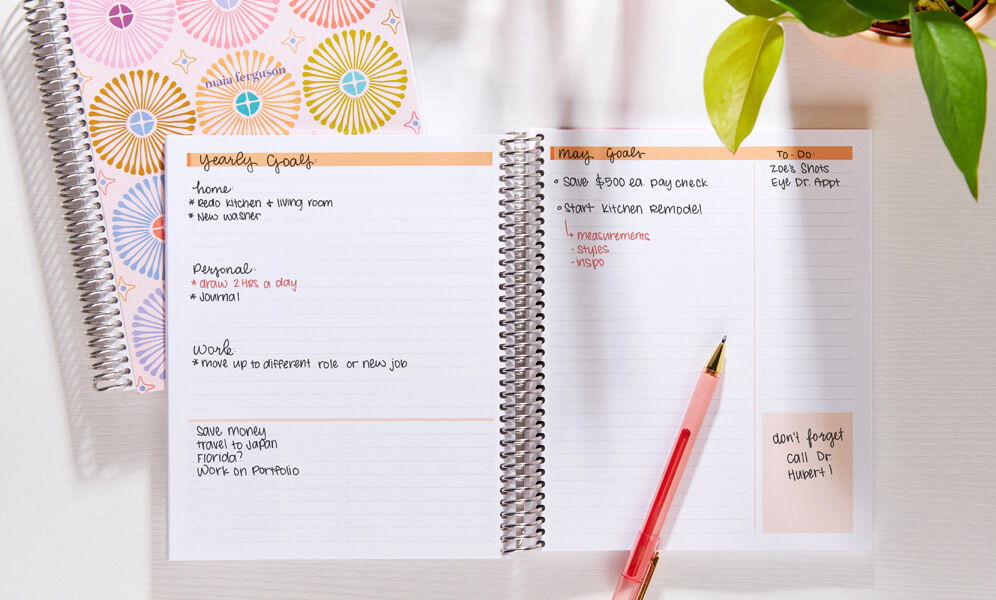 maia ferguson
Yearly Goals:
home:
* Redo kitchen + living room
* New washer
Personal:
* draw 2 HRS a day
* Journal
Work:
* move up to different role or new job
Save money
travel to Japan
Florida?
Work on Portfolio
May Goals
Save $500 ea. pay check
Start Kitchen Remodel
measurements
- Styles
- inspo
To-Do:
Zoe's Shots
Eye Dr. Appt
don't forget
call Dr
Hubert!